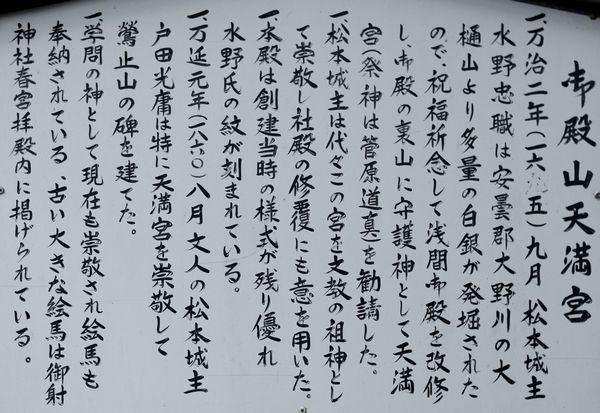 御殿山天満宮
一、万治二年(一六 五)九月 松本城主
水野忠職は安曇郡大野川の大
樋山より多量の白銀が発掘された
ので、祝福祈念して浅間御殿を改修
し、御殿の裏山に守護神として天満
宮(祭神は菅原道真)を勧請した。
一、松本城主は代々この宮を文教の祖神とし
て崇敬し社殿の修覆にも意を用いた。
一、本殿は創建当時の様式が残り優れ
水野氏の紋が刻まれている。
一、万延元年(一八六〇)八月 文人の松本城主
戸田光庸は特に天満宮を崇敬して
鶯止山の碑を建てた。
一、学問の神として現在も崇敬され絵馬も
奉納されている、古い大きな絵馬は御射
神社春宮拝殿内に掲げられている。